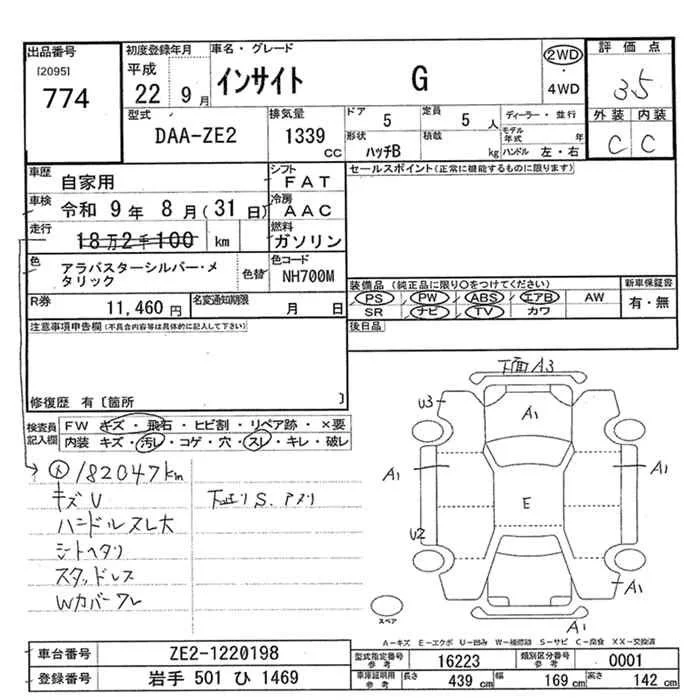 出品番号
[2095]
774
初度登録年月
平成
22 9月
車名・グレード
インサイト G
2WD
・
4WD
評価点
3.5
外装 内装
C C
型式
DAA-ZE2
排気量
1339
CC
ドア
5
定員
5 人
形状
ハッチB
積載
kg
ディーラー・並行
モデル年式 年
ハンドル 左・右
車歴
自家用
シフト
FAT
車検
令和 9年 8月(31日)
冷房
AAC
走行
18万2千100 km
燃料
ガソリン
色
アラバスターシルバー・メタリック
色替
色コード
NH700M
R券
11,460円
名変通知期限
月 日
セールスポイント(正常に機能するものに限ります)
装備品 (純正品に限り○をつけてください)
PS PW ABS エアB AW
SR ナビ TV カワ
新車保証書
有・無
後日品
注意事項申告欄(不具合内容等は具体的に記入して下さい)
修復歴 有〔箇所 〕
検査員記入欄
FW キズ・飛石・ヒビ割・リペア跡・×要
内装 キズ・汚レ・コゲ・穴・スレ・キレ・破レ
182047km
キズU
ハンドルスレ大
シートヘタリ
スタッドレス
Wカバーワレ
下回りS.アメリ
下面A3
U3
A1
A1
A1
E
U2
A1
A1
スペア
A-キズ E-エクボ U-凹み W-補修跡 S-サビ C-腐食 XX-交換済
車台番号
ZE2-1220198
登録番号
岩手 501 ひ 1469
型式指定番号
参考
16223
類別区分番号
参考
0001
車庫証明用
参考
長さ 439 cm
幅 169 cm
高さ 142 cm